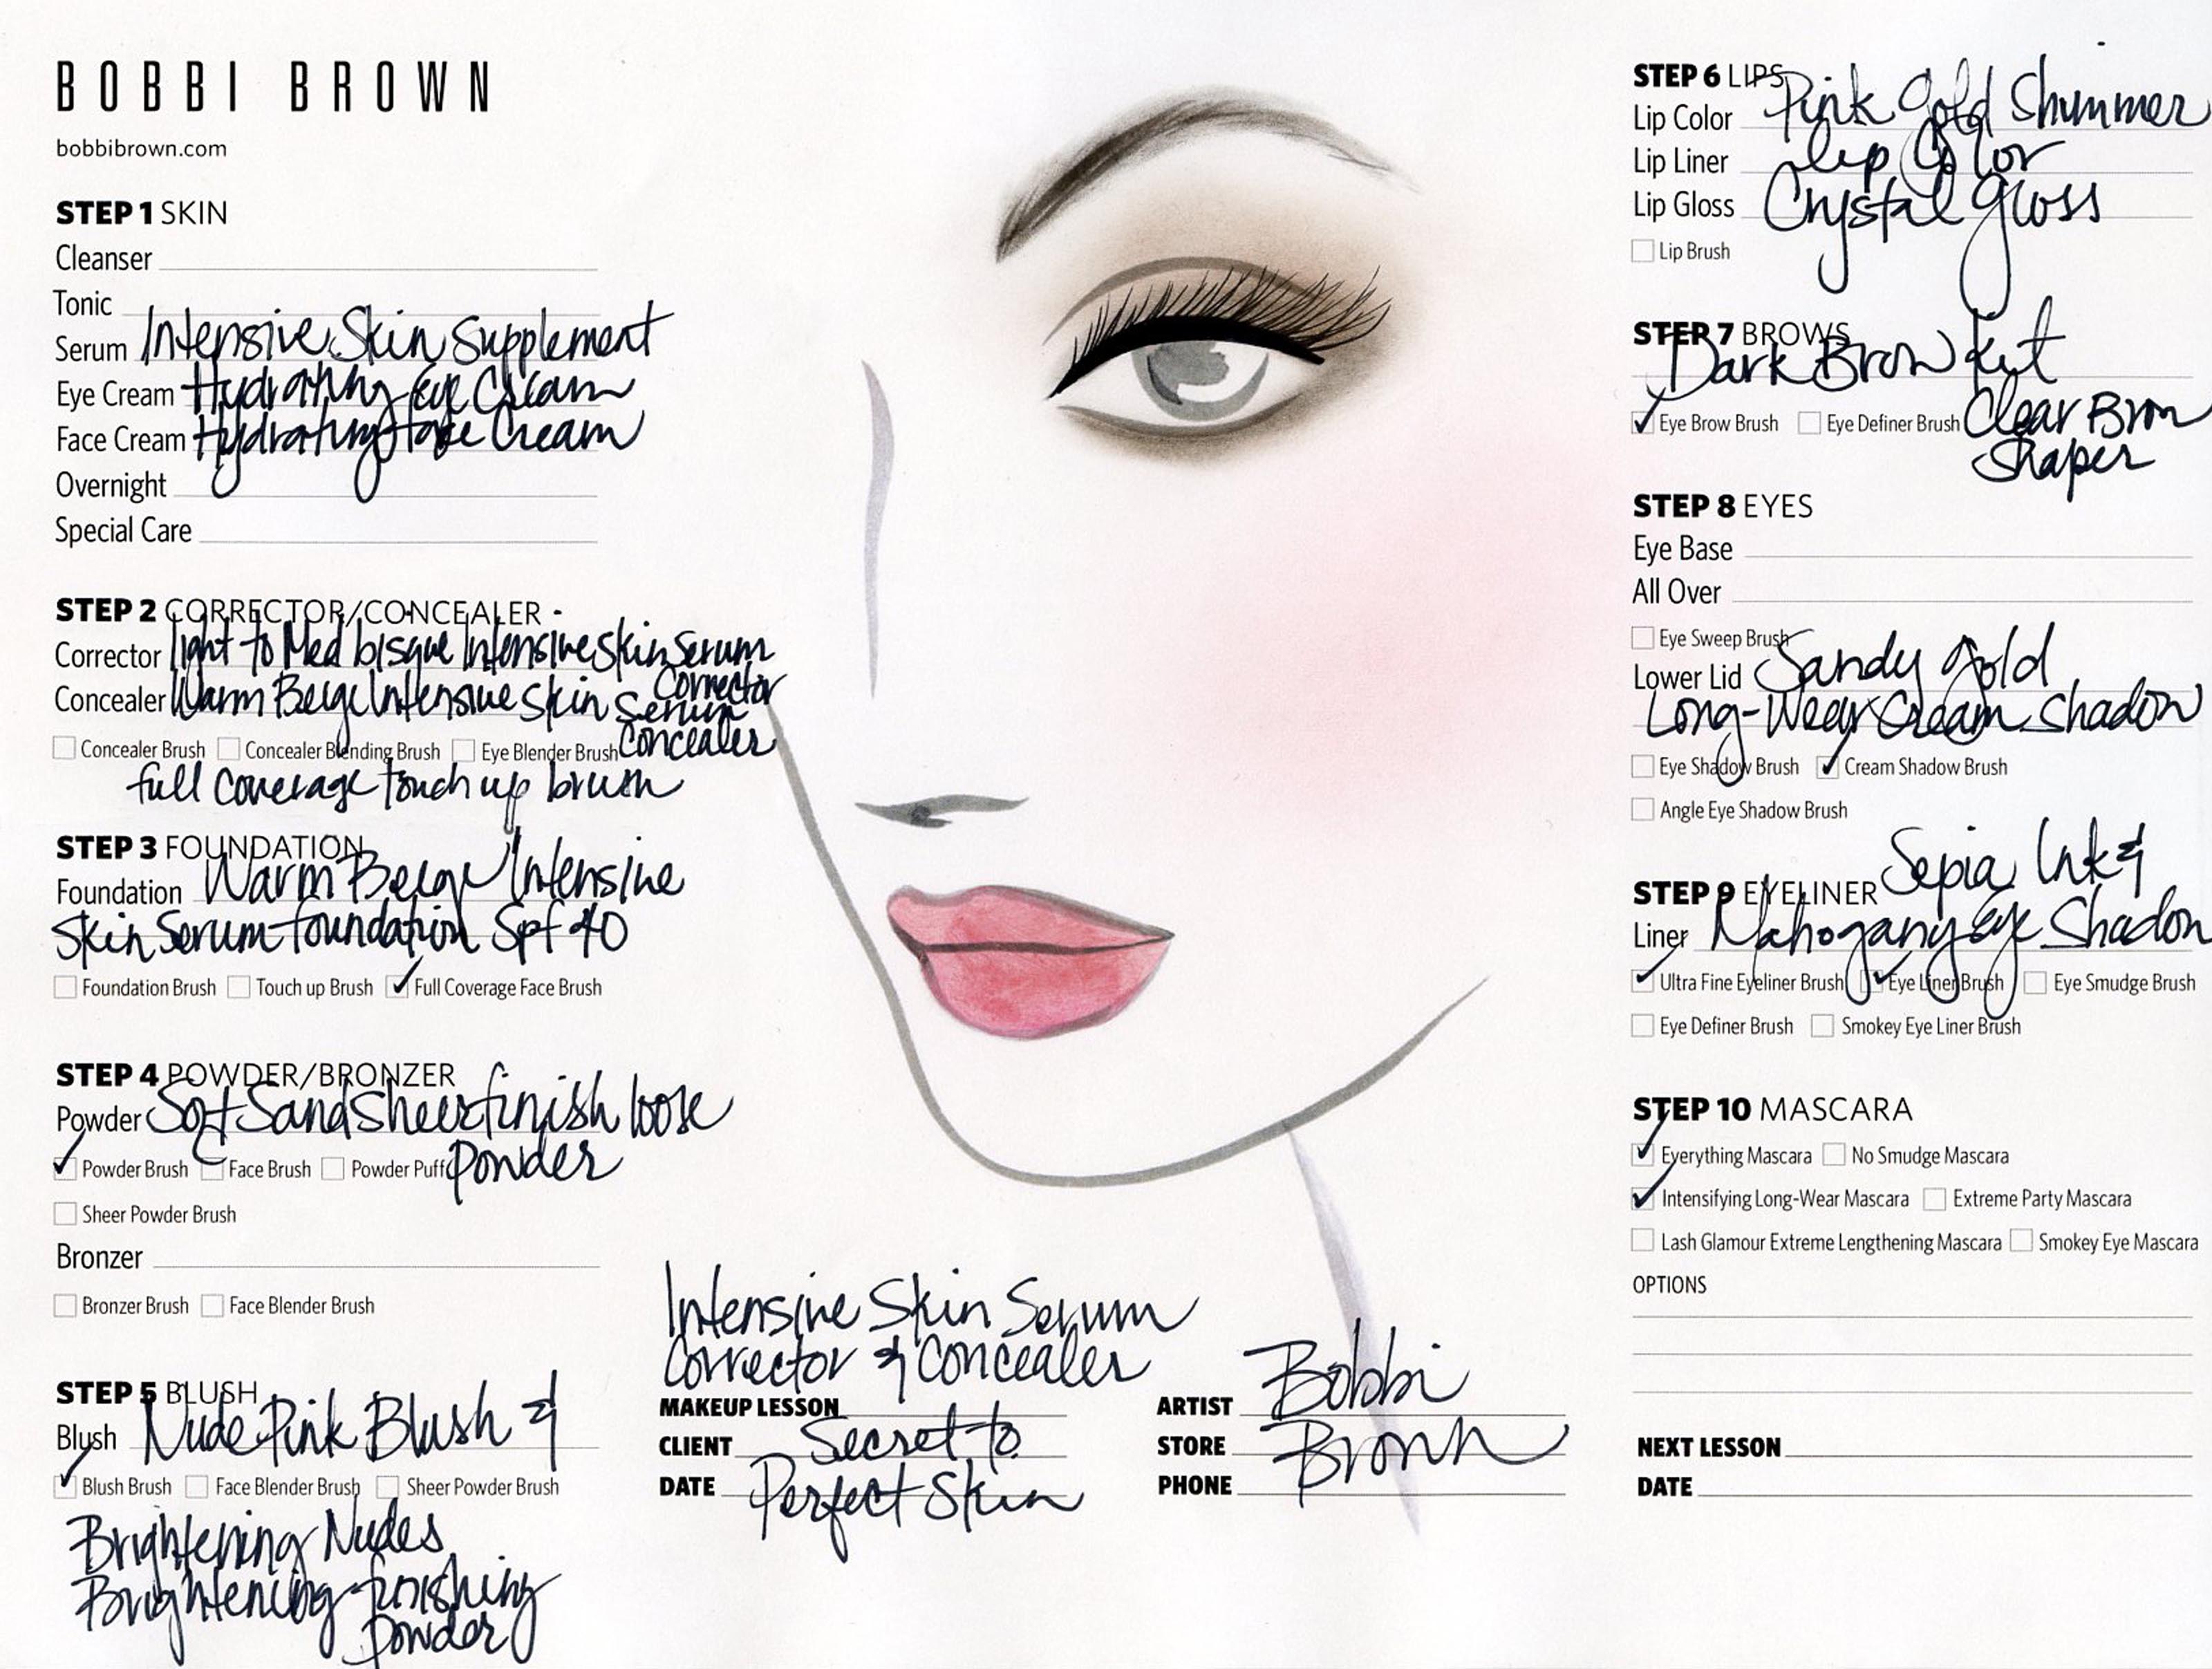 BOBBI BROWN
bobbibrown.com
STEP 1 SKIN
Cleanser
Tonic
Serum Intensive Skin Supplement
Eye Cream Hydrating Eye Cream
Face Cream Hydrating face Cream
Overnight
Special Care
STEP 2 CORRECTOR/CONCEALER
Corrector light to Med bisque Intensive Skin Serum
Corrector
Concealer Warm Beige Intensive Skin Serum
Concealer
Concealer Brush Concealer Blending Brush Eye Blender Brush
full coverage touch up brush
STEP 3 FOUNDATION
Foundation Warm Beige Intensive
Skin Serum foundation Spf 40
Foundation Brush Touch up Brush ✓ Full Coverage Face Brush
STEP 4 POWDER/BRONZER
Powder Soft Sand Sheer finish loose
Powder
✓ Powder Brush Face Brush Powder Puff
Sheer Powder Brush
Bronzer
Bronzer Brush Face Blender Brush
STEP 5 BLUSH
Blush Nude Pink Blush &
✓ Blush Brush Face Blender Brush Sheer Powder Brush
Brightening Nudes
Brightening finishing
powder
Intensive Skin Serum
Corrector & Concealer
MAKEUP LESSON
CLIENT Secret to
DATE Perfect Skin
ARTIST Bobbi
STORE Brown
PHONE
STEP 6 LIPS
Lip Color Pink Gold Shimmer
Lip Liner Lip Color
Lip Gloss Crystal gloss
Lip Brush
STEP 7 BROWS
Dark Brow Kit
✓ Eye Brow Brush Eye Definer Brush Clear Brow
Shaper
STEP 8 EYES
Eye Base
All Over
Eye Sweep Brush
Lower Lid Sandy gold
Long-Wear Cream Shadow
Eye Shadow Brush ✓ Cream Shadow Brush
Angle Eye Shadow Brush
STEP 9 EYELINER Sepia Ink &
Liner Mahogany Eye Shadow
✓ Ultra Fine Eyeliner Brush ✓ Eye Liner Brush Eye Smudge Brush
Eye Definer Brush Smokey Eye Liner Brush
STEP 10 MASCARA
✓ Everything Mascara No Smudge Mascara
✓ Intensifying Long-Wear Mascara Extreme Party Mascara
Lash Glamour Extreme Lengthening Mascara Smokey Eye Mascara
OPTIONS
NEXT LESSON
DATE